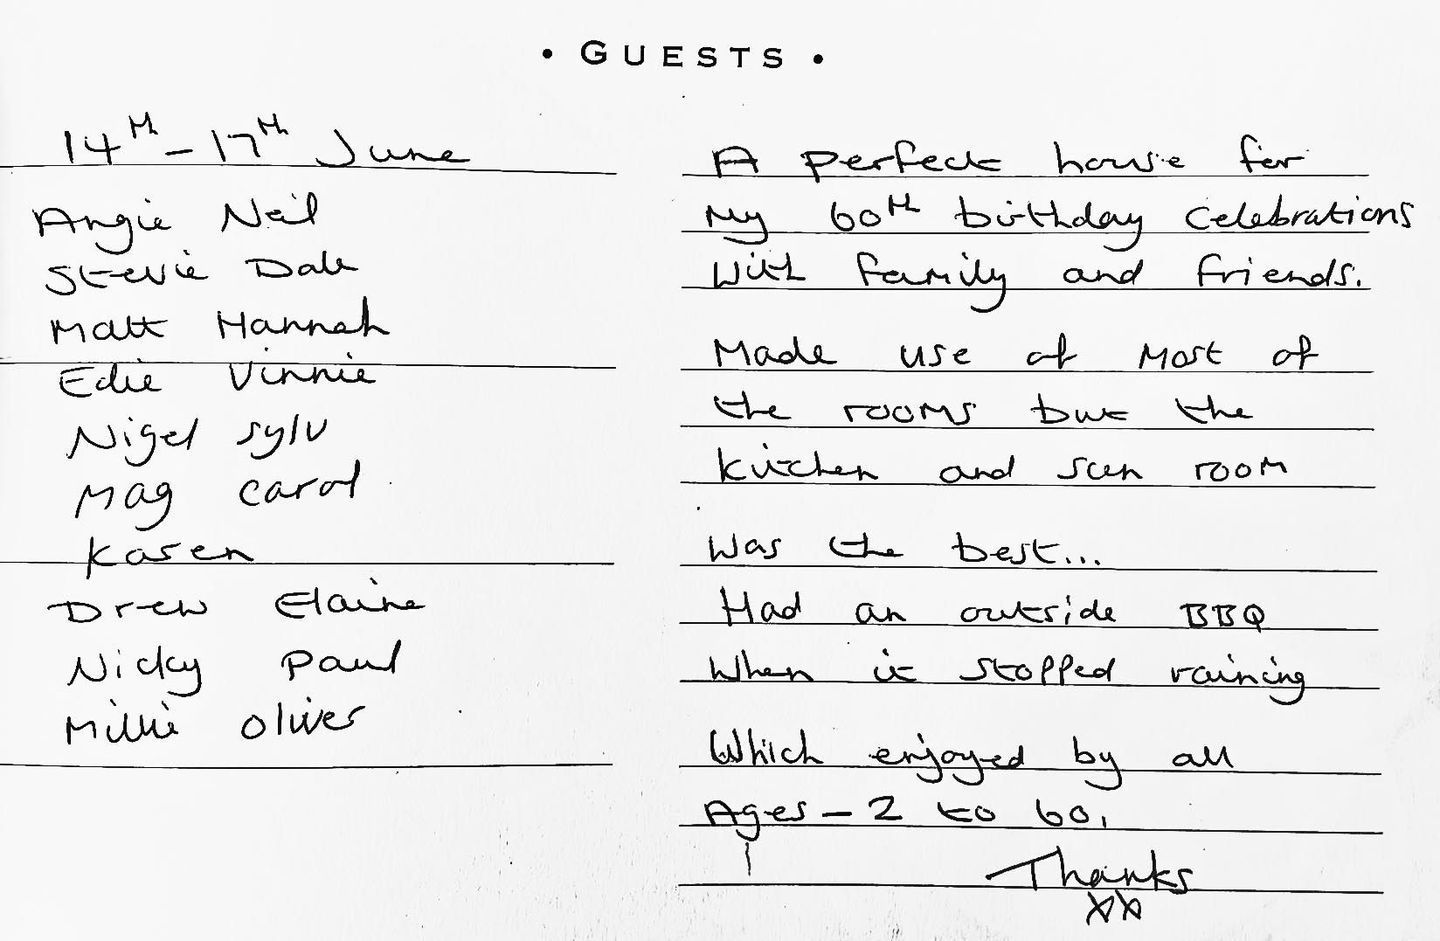 • GUESTS •
14th - 17th June
Angie Neil
Stevie Dale
Matt Hannah
Edie Vinnie
Nigel Sylv
Mag Carol
Karen
Drew Elaine
Nicky Paul
Millie Oliver
A perfect house for
My 60th birthday celebrations
With family and friends.
Made use of most of
the rooms but the
kitchen and sun room
Was the best...
Had an outside BBQ
When it stopped raining
Which enjoyed by all
Ages - 2 to 60.
Thanks
xx